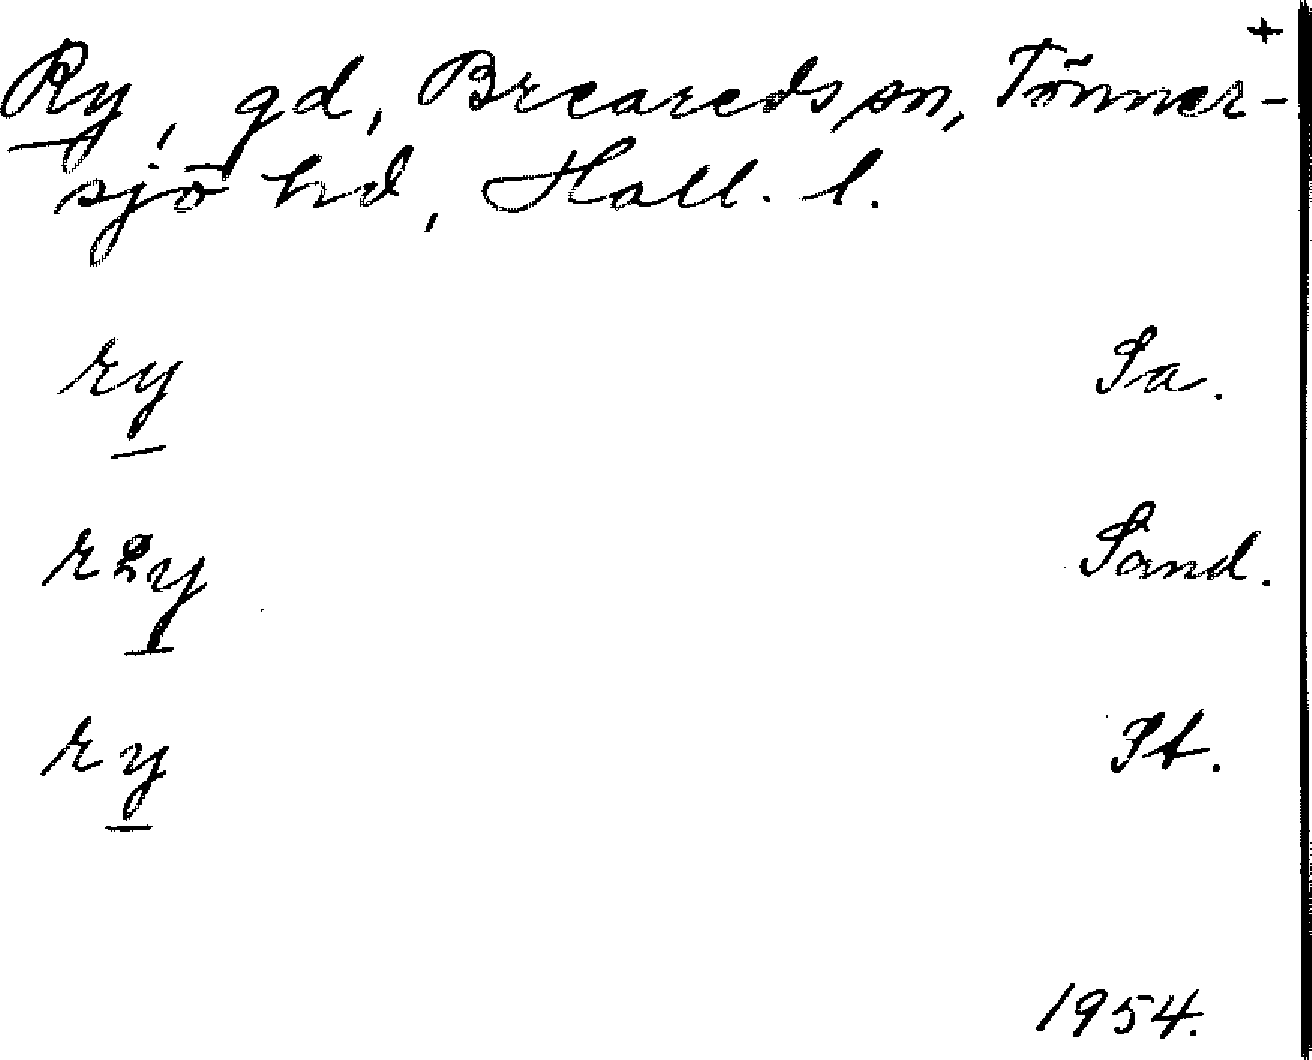 +
Ry, gd, Breareds sn, Tönner-
sjö hd, Hall. l.
ry Sa.
ry Sand.
ry St.
1954.